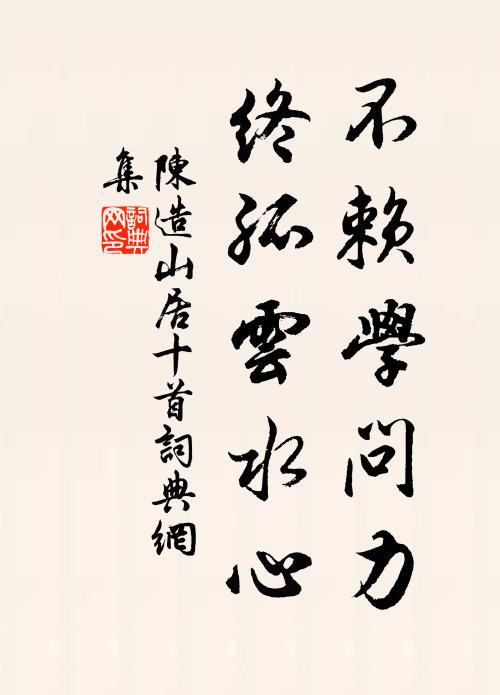 不賴學問力
終孤雲水心
陳造山居十首詞典網
集
詞典
网印